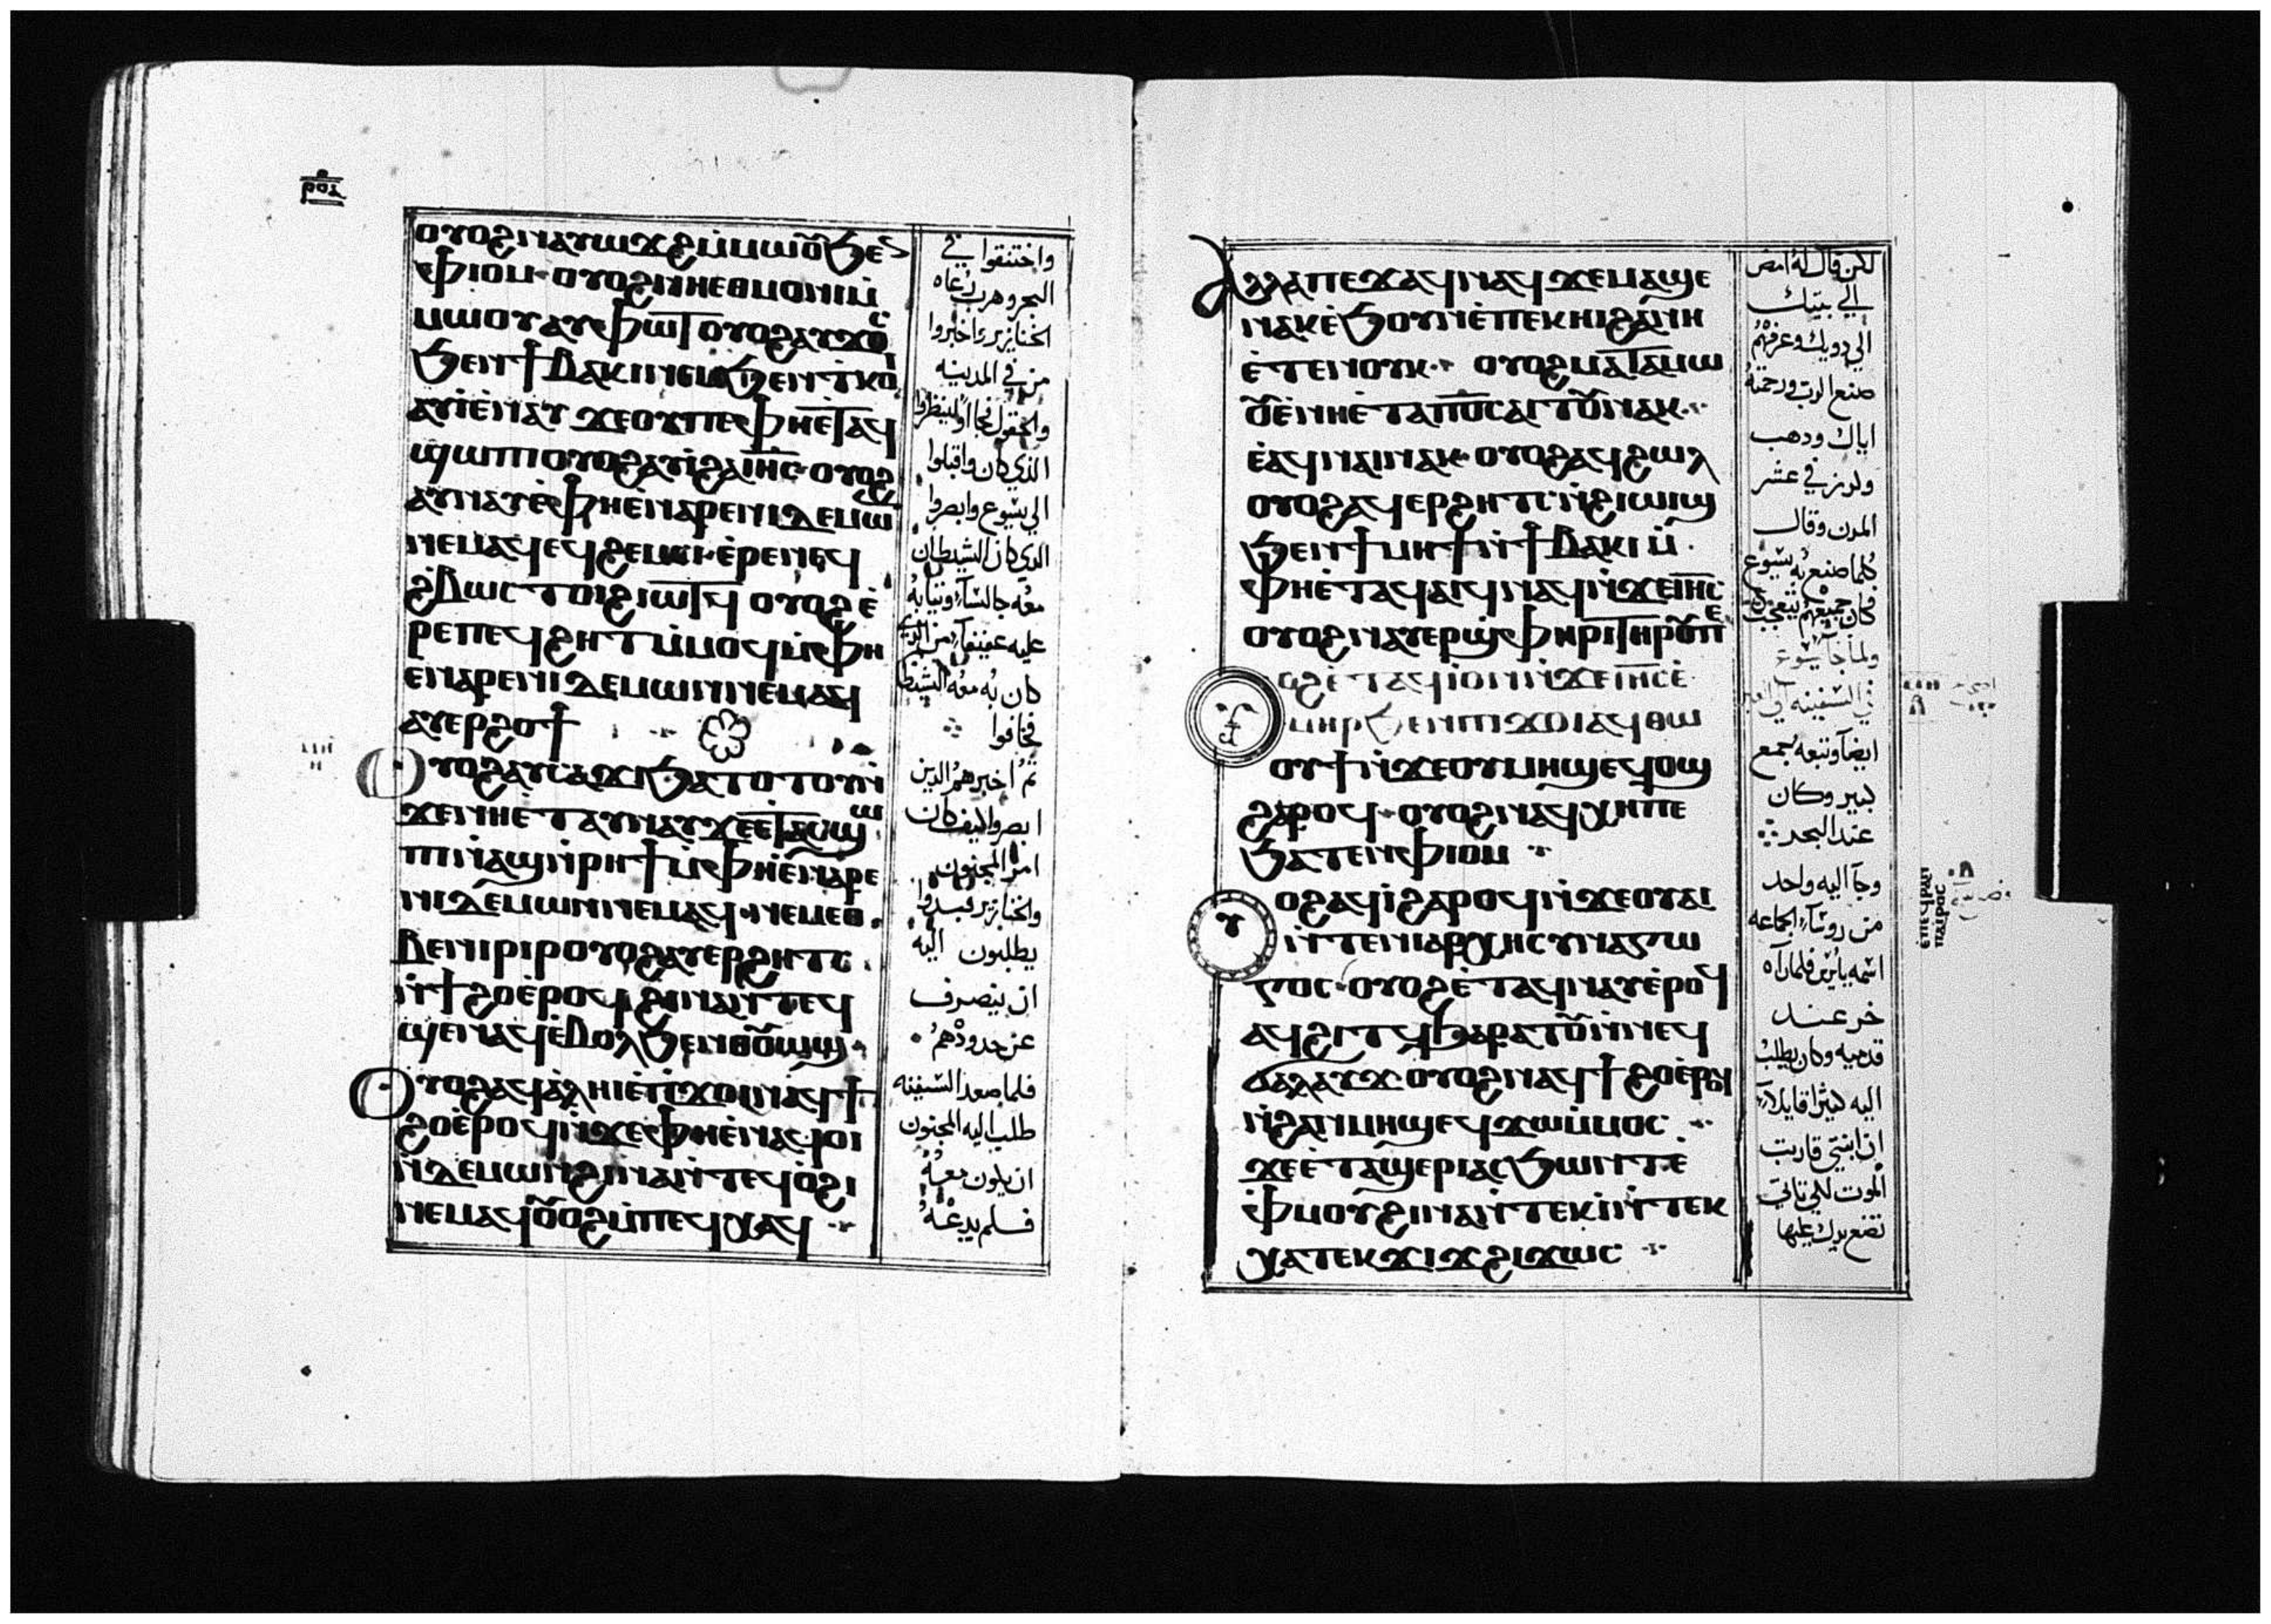 ⲟⲩⲟϩ ⲛⲁⲩⲱϫϩ ⲙ̀ⲙⲱⲟⲩ ϧⲉⲛ
ⲫⲓⲟⲙ· ⲟⲩⲟϩ ⲛⲏⲉⲑⲙⲟⲛⲓ ⲙ̀
ⲙⲱⲟⲩ ⲁⲩⲫⲱⲧ ⲟⲩⲟϩ ⲁⲩϫⲟⲥ
ϧⲉⲛ ϯⲃⲁⲕⲓ ⲛⲉⲙ ϧⲉⲛ ⲓⲕⲟⲓ
ⲁⲩⲓ̀ ⲉ̀ⲛⲁⲩ ϫⲉ ⲟⲩ ⲡⲉ ⲫⲏⲉⲧⲁϥ
ϣⲱⲡⲓ ⲟⲩⲟϩ ⲁⲩⲓ̀ ϩⲁ ⲓⲏⲥ· ⲟⲩⲟϩ
ⲁⲩⲛⲁⲩ ⲉ̀ⲫⲏⲉ̀ⲛⲁⲣⲉ ⲛⲓⲇⲉⲙⲱⲛ
ⲛⲉⲙⲁϥ ⲉϥϩⲉⲙⲥⲓ· ⲉ̀ⲣⲉ ⲛⲉϥ
ϩ̀ⲃⲱⲥ ⲧⲟⲓ ϩⲓⲱⲧϥ ⲟⲩⲟϩ ⲉ̀
ⲣⲉ ⲡⲉϥϩⲏⲧ ⲙ̀ⲙⲟϥ ⲙ̀ⲫⲏ
ⲉⲛⲁⲣⲉ ⲛⲓⲇⲉⲙⲱⲛ ⲛⲉⲙⲁϥ
ⲁⲩⲉⲣϩⲟϯ
ⲟⲩⲟϩ ⲁⲩⲥⲁϫⲓ ϧⲁⲧⲟⲧⲟⲩ ⲛ̀
ϫⲉ ⲛⲏⲉⲧⲁⲩⲛⲁⲩ ϫⲉ ⲉⲧⲁϥϣⲱ
ⲡⲓ ⲛ̀ⲁϣ ⲛ̀ⲣⲏϯ ⲙ̀ⲫⲏⲉ̀ⲛⲁⲣⲉ
ⲛⲓⲇⲉⲙⲱⲛ ⲛⲉⲙⲁϥ· ⲛⲉⲙ ⲉⲑ
ⲃⲉ ⲛⲓⲣⲓⲣ ⲟⲩⲟϩ ⲁⲩⲉⲣϩⲏⲧⲥ
ⲛ̀ϯϩⲟ ⲉ̀ⲣⲟϥ ϩⲓⲛⲁ ⲛ̀ⲧⲉϥ
ϣⲉⲛⲁϥ ⲉ̀ⲃⲟⲗ ϧⲉⲛ ⲑⲟⲩⲱϣ
ⲟⲩⲟϩ ⲁϥⲁ̀ⲗⲏⲓ ⲉ̀ⲡⲓϫⲟⲓ ⲛⲁϥϯ
ϩⲟ ⲉ̀ⲣⲟϥ ⲛ̀ϫⲉ ⲫⲏⲉ̀ⲛⲁϥⲟⲓ
ⲛ̀ⲇⲉⲙⲱⲛ ϩⲓⲛⲁ ⲛ̀ⲧⲉϥⲟ̀ϩⲓ
ⲛⲉⲙⲁϥ ⲟⲩⲟϩ ⲙ̀ⲡⲉϥⲭⲁϥ
واختنقوا في
البحر وهرب رعاه
الخنازير واخبروا
من في المدينه
والحقول فجاا ولينظروا
الذي كان واقبلوا
الي يسوع وابصروا
الذي كان الشيطان
معه جالسا وثيابه
عليه عفيفا من الذي
كان به معه الشيطا
فخافوا
ثم اخبرهم الذين
ابصروا كيف كان
امر المجنون
والخنازير فبدوا
يطلبون اليه
ان ينصرف
عن حدودهم
فلما صعد السفينه
طلب اليه المجنون
ان يكون معه
فلم يدعه
ⲁⲗⲗⲁ ⲡⲉϫⲁϥ ⲛⲁϥ ϫⲉ ⲙⲁϣⲉ
ⲛⲁⲕ ⲉ̀ϧⲟⲩⲛ ⲉ̀ⲡⲉⲕⲏⲓ ϩⲁ ⲛⲏ
ⲉ̀ⲧⲉⲛⲟⲩⲕ· ⲟⲩⲟϩ ⲙⲁⲧⲁⲙⲱ
ⲟⲩ ⲉ̀ⲛⲏⲉ̀ⲧⲁ ⲡⲟⲥ ⲁⲓⲧⲟⲩ ⲛⲁⲕ·
ⲉ̀ⲁϥⲛⲁⲓ ⲛⲁⲕ· ⲟⲩⲟϩ ⲁϥϩⲱⲗ
ⲟⲩⲟϩ ⲁϥⲉⲣϩⲏⲧⲥ ⲛ̀ϩⲓⲱⲓϣ
ϧⲉⲛ ϯⲙⲏϯ ⲛ̀ϯⲃⲁⲕⲓ ⲙ̀
ⲫⲏⲉ̀ⲧⲁϥⲁⲓϥ ⲛⲁϥ ⲛ̀ϫⲉ ⲓⲏⲥ
ⲟⲩⲟϩ ⲛⲁⲩⲉⲣϣⲫⲏⲣⲓ ⲧⲏⲣⲟⲩ ⲡⲉ
ⲟϩ ⲉ̀ⲧⲁϥⲓⲟⲛⲓ ⲛ̀ϫⲉ ⲓⲏⲥ ⲉ̀
ⲙⲏⲣ ϧⲉⲛ ⲡⲓϫⲟⲓ ⲁϥⲑⲱ
ⲟⲩϯ ⲛ̀ϫⲉ ⲟⲩⲙⲏϣ ⲉϥⲟϣ
ϩⲁⲣⲟϥ· ⲟⲩⲟϩ ⲛⲁϥⲭⲏ ⲡⲉ
ϧⲁⲧⲉⲛ ⲫⲓⲟⲙ
ⲟⲩⲟϩ ⲁϥⲓ̀ ϩⲁⲣⲟϥ ⲛ̀ϫⲉ ⲟⲩⲁⲓ
ⲛ̀ⲧⲉ ⲛⲓⲁⲣⲭⲏⲥⲩⲛⲁⲅⲱ
ⲅⲟⲥ· ⲟⲩⲟϩ ⲉ̀ⲧⲁϥⲛⲁⲩ ⲉ̀ⲣⲟϥ
ⲁϥϩⲓⲧϥ ϧⲁⲣⲁⲧⲟⲩ ⲛ̀ⲛⲉϥ
ϭⲁⲗⲁⲩϫ· ⲟⲩⲟϩ ⲛⲁϥϯϩⲟ ⲉ̀ⲣⲟϥ
ⲛ̀ϩⲁⲛⲙⲏϣ ⲉϥϫⲱ ⲙ̀ⲙⲟⲥ
ϫⲉ ⲉ̀ⲧⲁϣⲉⲣⲓ ⲁⲥϧⲱⲛⲧ ⲉ̀
ⲫⲙⲟⲩ ϩⲓⲛⲁ ⲛ̀ⲧⲉⲕⲓ̀ ⲛ̀ⲧⲉⲕ
ⲭⲁ ⲧⲉⲕϫⲓϫ ϩⲓϫⲱⲥ
لكن قال له امض
الي بيتك
الي دويك وعرفهم
صنع الرب ورحمته
اياك ودهب
وكرز في عشر
المدن وقال
كلما صنع به يسوع
فكان جميعهم يتعجب
ولما جا يسوع
في السفينه الي العبر
ايضا وتبعه جمع
كبير وكان
عند البحر
وجا اليه واحد
من روسا الجماعه
اسمه يايرس فلما راه
خر عند
قدميه وكان يطلب
اليه كثيرا قايلا
ان ابنتي قاربت
الموت لكي تاتي
تضع يدك عليها
ⲉⲡⲉϥⲣⲁⲛ
ⲡⲁⲓⲣⲟⲥ